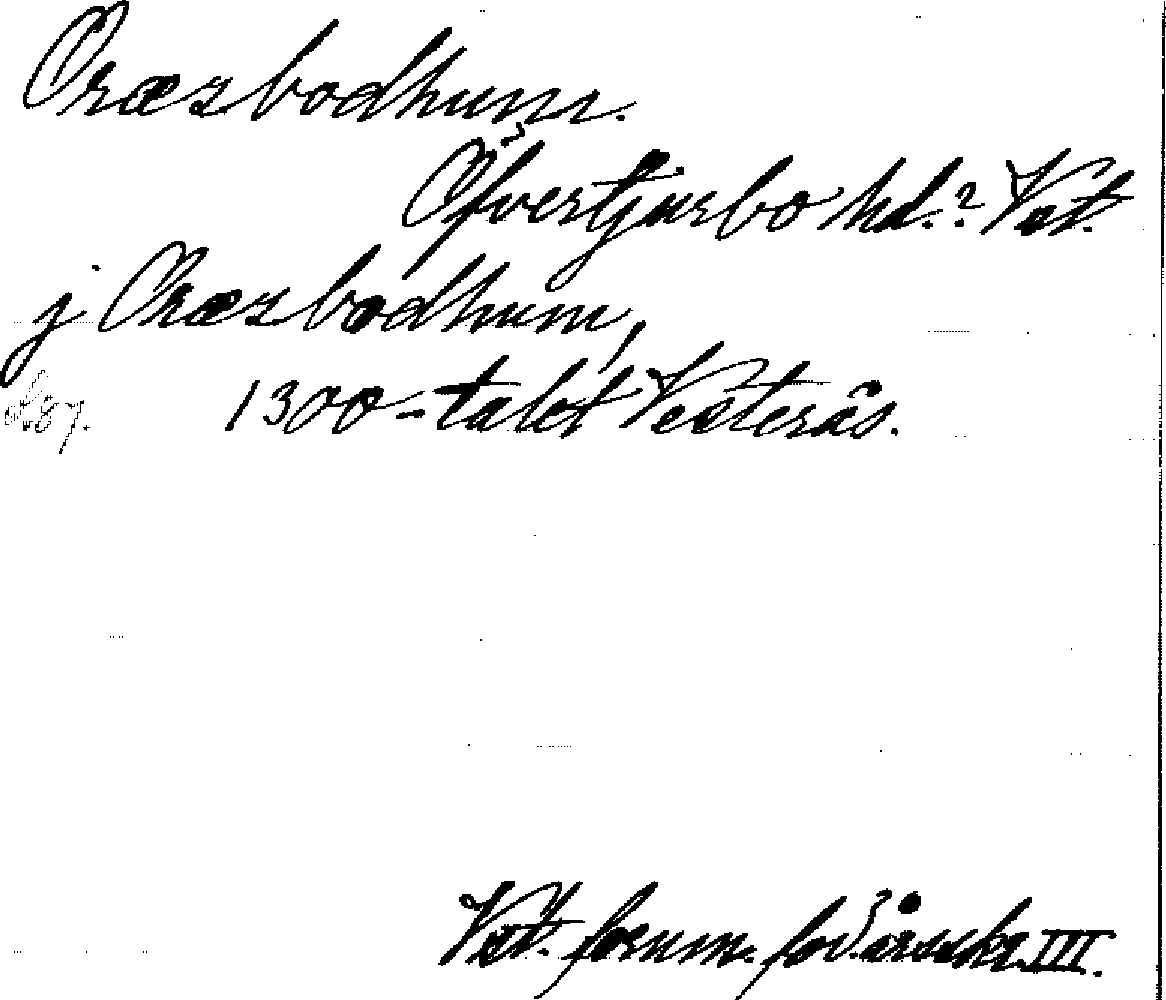 Oræzbodhum.
Öfvertjurbo hd.? Vst.
j Oræzbodhum,
1300-talet Vesterås.
Vst. fornm. för. årsskr. III.